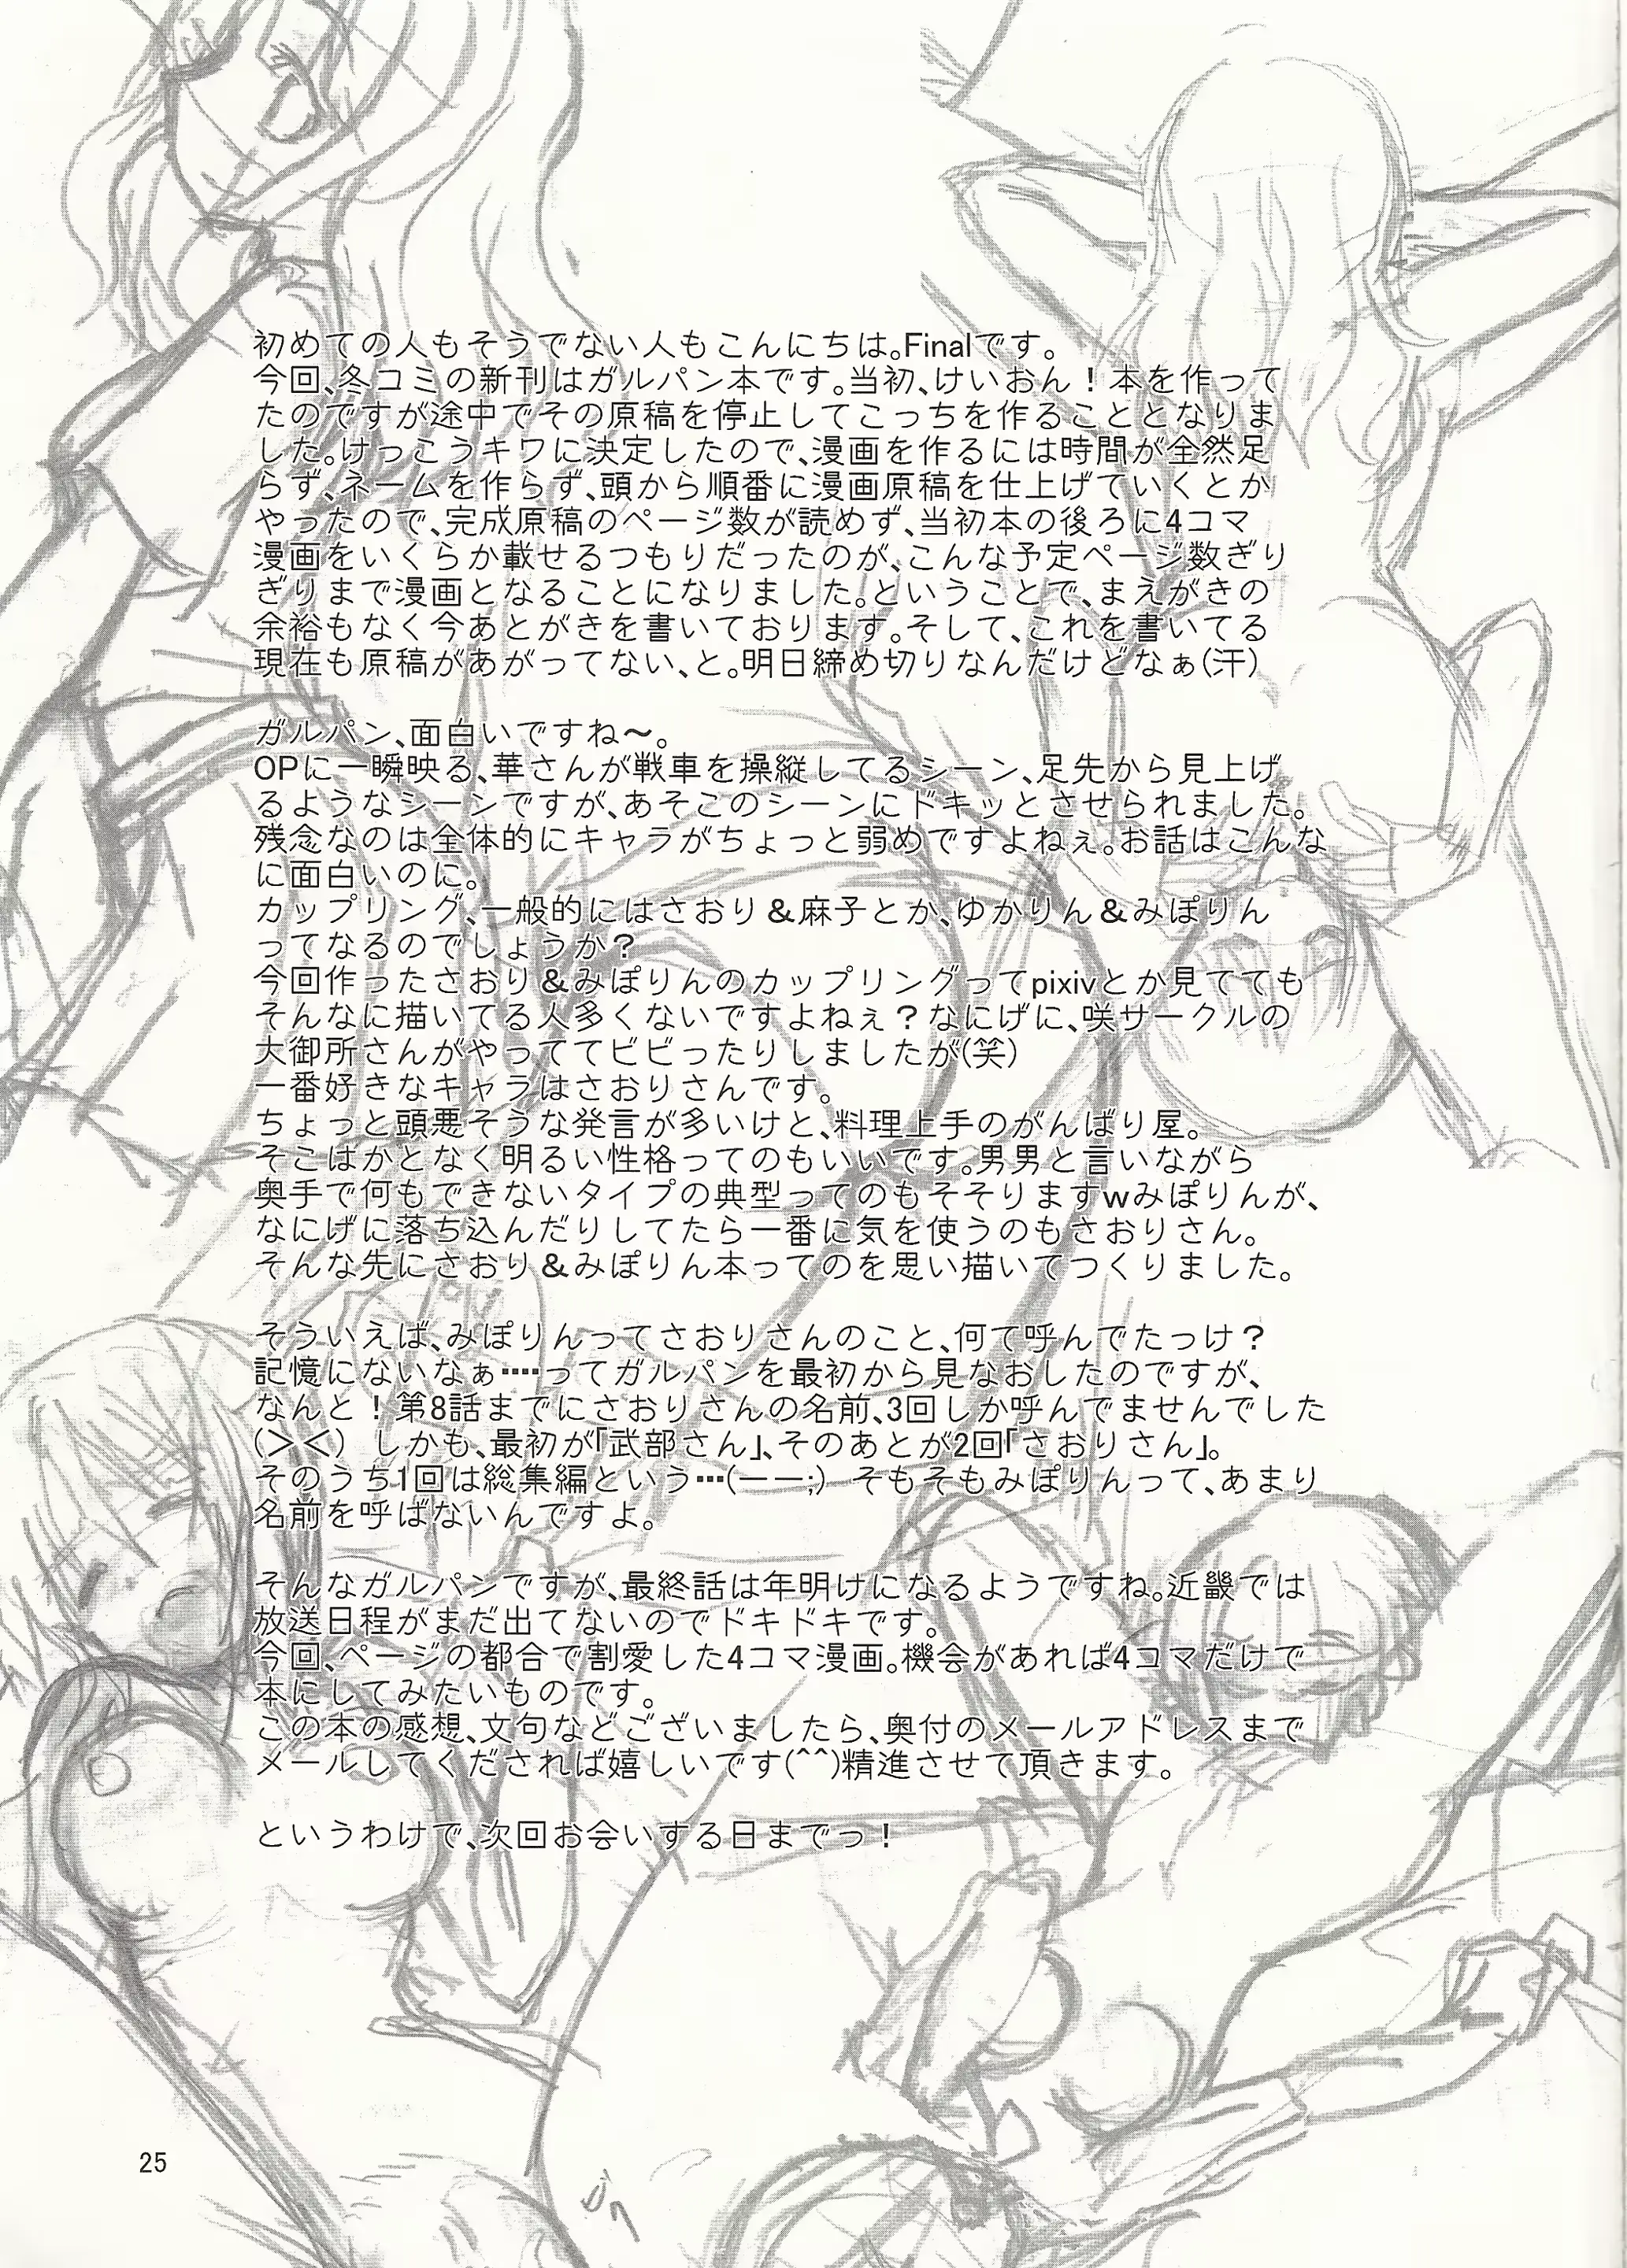 初めての人もそうでない人もこんにちは。Finalです。
今回、冬コミの新刊はガルパン本です。当初、けいおん！本を作って
たのですが途中でその原稿を停止してこっちを作ることとなりま
した。けっこうキワに決定したので、漫画を作るには時間が全然足
らず、ネームを作らず、頭から順番に漫画原稿を仕上げていくとか
やったので、完成原稿のページ数が読めず、当初本の後ろに4コマ
漫画をいくらか載せるつもりだったのが、こんな予定ページ数ぎり
ぎりまで漫画となることになりました。ということで、まえがきの
余裕もなく今あとがきを書いております。そして、これを書いてる
現在も原稿があがってない、と。明日締め切りなんだけどなぁ(汗)
ガルパン、面白いですね～。
OPに一瞬映る、華さんが戦車を操縦してるシーン、足先から見上げ
るようなシーンですが、あそこのシーンにドキッとさせられました。
残念なのは全体的にキャラがちょっと弱めですよねぇ。お話はこんな
に面白いのに。
カップリング、一般的にはさおり＆麻子とか、ゆかりん＆みぽりん
ってなるのでしょうか？
今回作ったさおり＆みぽりんのカップリングってpixivとか見てても
そんなに描いてる人多くないですよねぇ？なにげに、咲サークルの
大御所さんがやっててビビったりしましたが(笑)
一番好きなキャラはさおりさんです。
ちょっと頭悪そうな発言が多いけと、料理上手のがんばり屋。
そこはかとなく明るい性格ってのもいいです。男男と言いながら
奥手で何もできないタイプの典型ってのもそそりますwみぽりんが、
なにげに落ち込んだりしてたら一番に気を使うのもさおりさん。
そんな先にさおり＆みぽりん本ってのを思い描いてつくりました。
そういえば、みぽりんってさおりさんのこと、何て呼んでたっけ？
記憶にないなぁ‥‥‥ってガルパンを最初から見なおしたのですが、
なんと！第8話までにさおりさんの名前、3回しか呼んでませんでした
(＞＜)　しかも、最初が「武部さん」、そのあとが2回「さおりさん」。
そのうち1回は総集編という…(ーー;)　そもそもみぽりんって、あまり
名前を呼ばないんですよ。
そんなガルパンですが、最終話は年明けになるようですね。近畿では
放送日程がまだ出てないのでドキドキです。
今回、ページの都合で割愛した4コマ漫画。機会があれば4コマだけで
本にしてみたいものです。
この本の感想、文句などございましたら、奥付のメールアドレスまで
メールしてくだされば嬉しいです(^^)精進させて頂きます。
というわけで、次回お会いする日までっ！
25